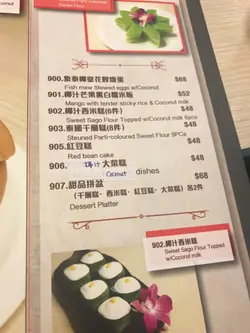 900.象泰椰皇花膠燉蛋 $68
Fish maw Stewed eggs w/Coconut
901.椰汁芒果黑白糯米飯 $52
Mango with tender sticky rice & Coconut milk
902.椰汁西米糕(6件) $48
Sweet Sago Flour Topped w/Coconut milk 6pcs
903.泰國千層糕(8件) $48
Steuned Parti-coloured Sweet Flour 8PCs
905.紅豆糕 $48
Red bean cake
906. 椰汁 大菜糕 $48
Coconut dishes
907.甜品拼盆 $68
(千層糕、西米糕、紅豆糕、大菜糕) 各2件
Dessert Platter
902.椰汁西米糕
Sweet Sago Flour Topped
w/Coconut milk